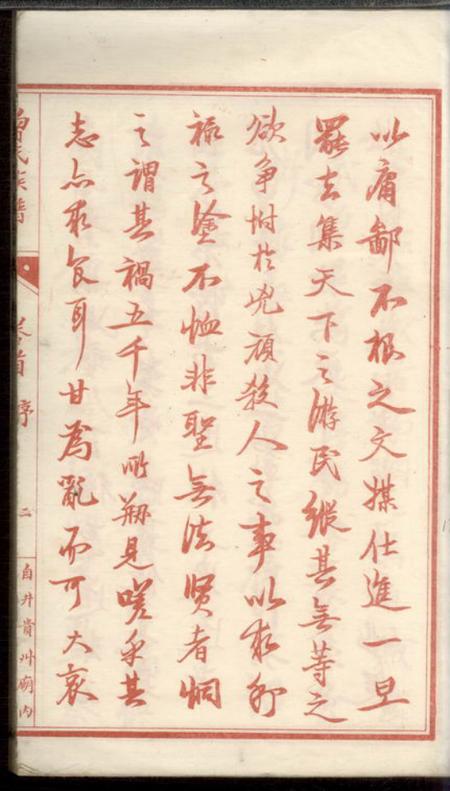 以庸鄙不根之文媒仕進一旦
罷去集天下之游民縱其無等之
欲爭附於兇頑殺人之事以求利
祿之塗不恤非聖無法賢者恫
之謂其禍五千年所刱見嗟乎其
志亦求食耳甘為亂而可大哀
族譜
卷首 序
二
自井貴州廟內